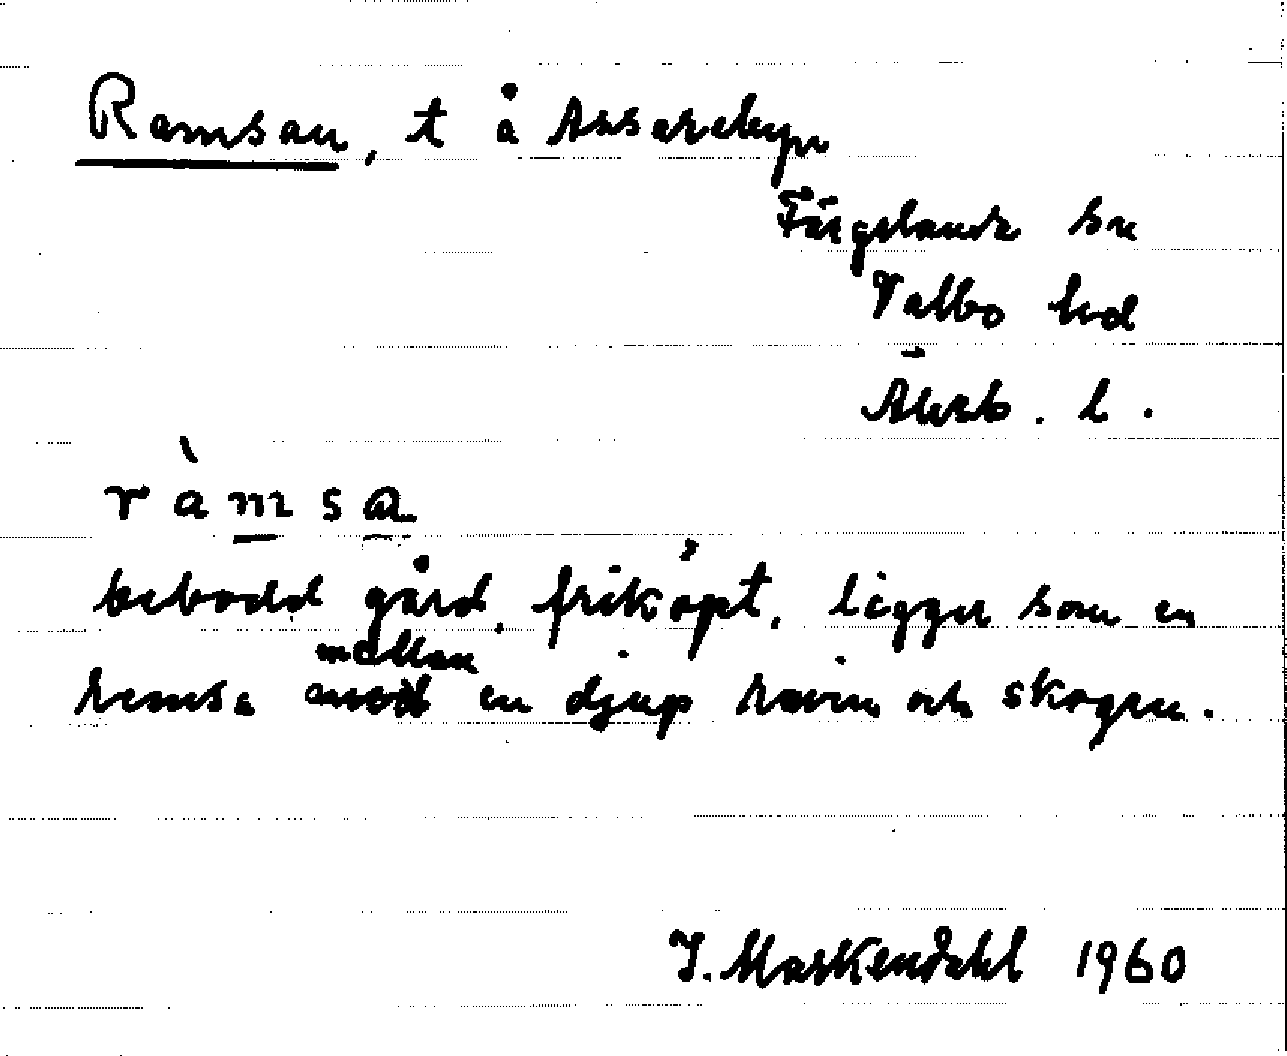 Ramsan, t å Assarebyn
Färgelanda sn
Valbo hd
Älvsb. l.
ràmsa
bebodd gård, friköpt, ligger som en
mellan
remsa en djup ravin och skogen.
J. Maskendahl 1960